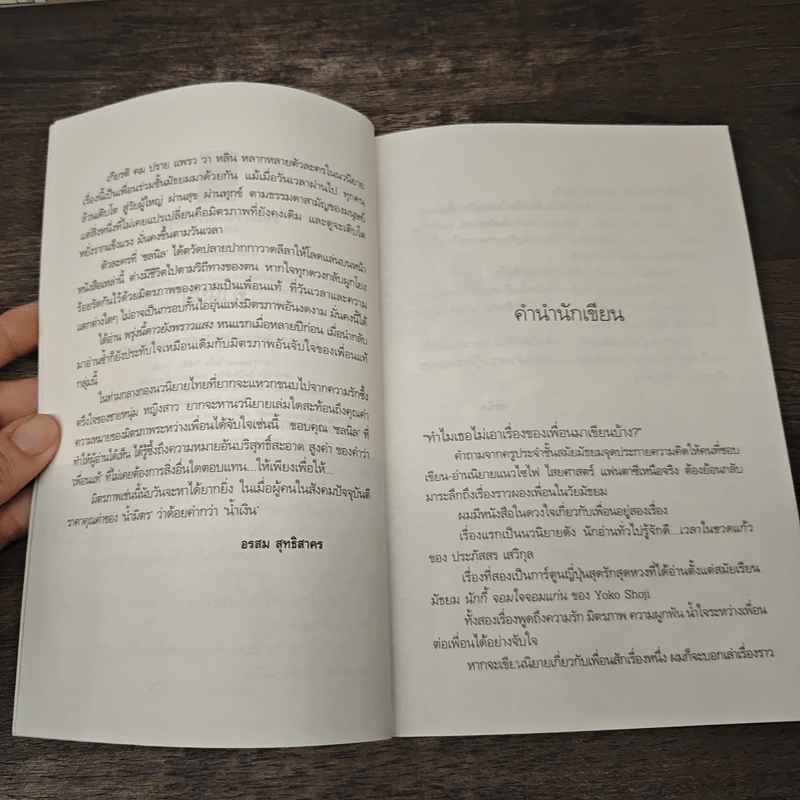 เกียรติ คม ปราย แพรว วา หลิน หลากหลายตัวละครในนวนิยาย
เรื่องนี้เป็นเพื่อนร่วมชั้นมัธยมมาด้วยกัน แม้เมื่อวันเวลาผ่านไป ทุกคน
ล้วนเติบโต สู่วัยผู้ใหญ่ ผ่านสุข ผ่านทุกข์ ตามธรรมดาสามัญของมนุษย์
แต่สิ่งหนึ่งที่ไม่เคยแปรเปลี่ยนคือมิตรภาพที่ยังคงเดิม และดูจะเติบโต
หยั่งรากแข็งแรง มั่นคงขึ้นตามวันเวลา
ตัวละครที่ 'ชลนิล' ได้ตวัดปลายปากกาวาดลีลาให้โลดแล่นบนหน้า
หนังสือเหล่านี้ ต่างมีชีวิตไปตามวิถีทางของตน หากใจทุกดวงกลับผูกโยง
ร้อยรัดกันไว้ด้วยมิตรภาพของความเป็นเพื่อนแท้ ที่วันเวลาและความ
แตกต่างใดๆ ไม่อาจเป็นกรอบกั้นไออุ่นแห่งมิตรภาพอันงดงาม มั่นคงนี้ได้
ได้อ่าน พรุ่งนี้ดาวยังพราวแสง หนแรกเมื่อหลายปีก่อน เมื่อนำกลับ
มาอ่านซ้ำก็ยังประทับใจเหมือนเดิมกับมิตรภาพอันจับใจของเพื่อนแท้
กลุ่มนี้
ในท่ามกลางกองนวนิยายไทยที่ยากจะแหวกขนบไปจากความรักซึ้ง
ตรึงใจของชายหนุ่ม หญิงสาว ยากจะหานวนิยายเล่มใดสะท้อนถึงคุณค่า
ความหมายของมิตรภาพระหว่างเพื่อนได้จับใจเช่นนี้ ขอบคุณ 'ชลนิล' ที่
ทำให้ผู้อ่านได้เห็น ได้รู้ซึ้งถึงความหมายอันบริสุทธิ์สะอาด สูงค่า ของคำว่า
'เพื่อนแท้' ที่ไม่เคยต้องการสิ่งอื่นใดตอบแทน...ให้เพียงเพื่อให้...
มิตรภาพเช่นนี้นับวันจะหาได้ยากยิ่ง ในเมื่อผู้คนในสังคมปัจจุบันตี
ราคาคุณค่าของ 'น้ำมิตร' ว่าด้อยค่ากว่า 'น้ำเงิน'
อรสม สุทธิสาคร
คำนำนักเขียน
"ทำไมเธอไม่เอาเรื่องของเพื่อนมาเขียนบ้าง?"
คำถามจากครูประจำชั้นสมัยมัธยมจุดประกายความคิดให้คนที่ชอบ
เขียน-อ่านนิยายแนวไซไฟ ไสยศาสตร์ แฟนตาซีเหนือจริง ต้องย้อนกลับ
มาระลึกถึงเรื่องราวผองเพื่อนในวัยมัธยม
ผมมีหนังสือในดวงใจเกี่ยวกับเพื่อนอยู่สองเรื่อง
เรื่องแรกเป็นนวนิยายดัง นักอ่านทั่วไปรู้จักดี...เวลาในขวดแก้ว
ของ ประภัสสร เสวิกุล
เรื่องที่สองเป็นการ์ตูนญี่ปุ่นสุดรักสุดหวงที่ได้อ่านตั้งแต่สมัยเรียน
มัธยม นักกี้ จอมใจจอมแก่น ของ Yoko Shoji
ทั้งสองเรื่องพูดถึงความรัก มิตรภาพ ความผูกพัน น้ำใจระหว่างเพื่อน
ต่อเพื่อนได้อย่างจับใจ
หากจะเขียนนิยายเกี่ยวกับเพื่อนสักเรื่องหนึ่ง ผมก็จะบอกเล่าเรื่องราว